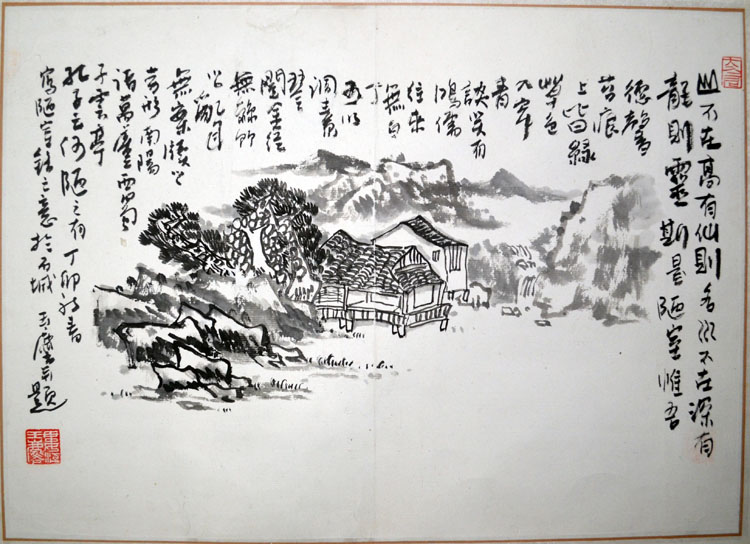 山不在高有仙則名水不在深有
龍則靈斯是陋室惟吾
德馨
苔痕
上階綠
草色
入簾
青
談笑有
鴻儒
往來
無白
丁
可以
調素
琴
閱金經
無絲竹
之亂耳
無案牘之
勞形南陽
諸葛廬西蜀
子雲亭
孔子云何陋之有 丁卯
寫陋室銘之意於石城 題